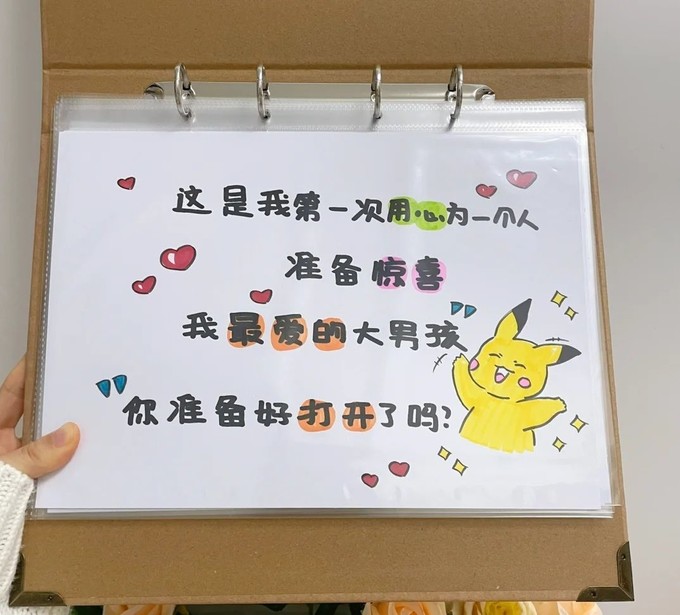 这是我第一次用心为一个人
准备惊喜
我最爱的大男孩”
“你准备好打开了吗?